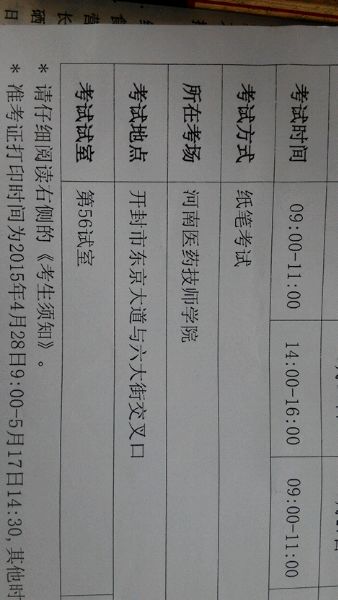 考试时间 09:00-11:00 14:00-16:00 09:00-11:00
考试方式 纸笔考试
所在考场 河南医药技师学院
考试地点 开封市东京大道与六大街交叉口
考试试室 第56试室
* 请仔细阅读右侧的《考生须知》。
* 准考证打印时间为2015年4月28日9:00-5月17日14:30,其他时